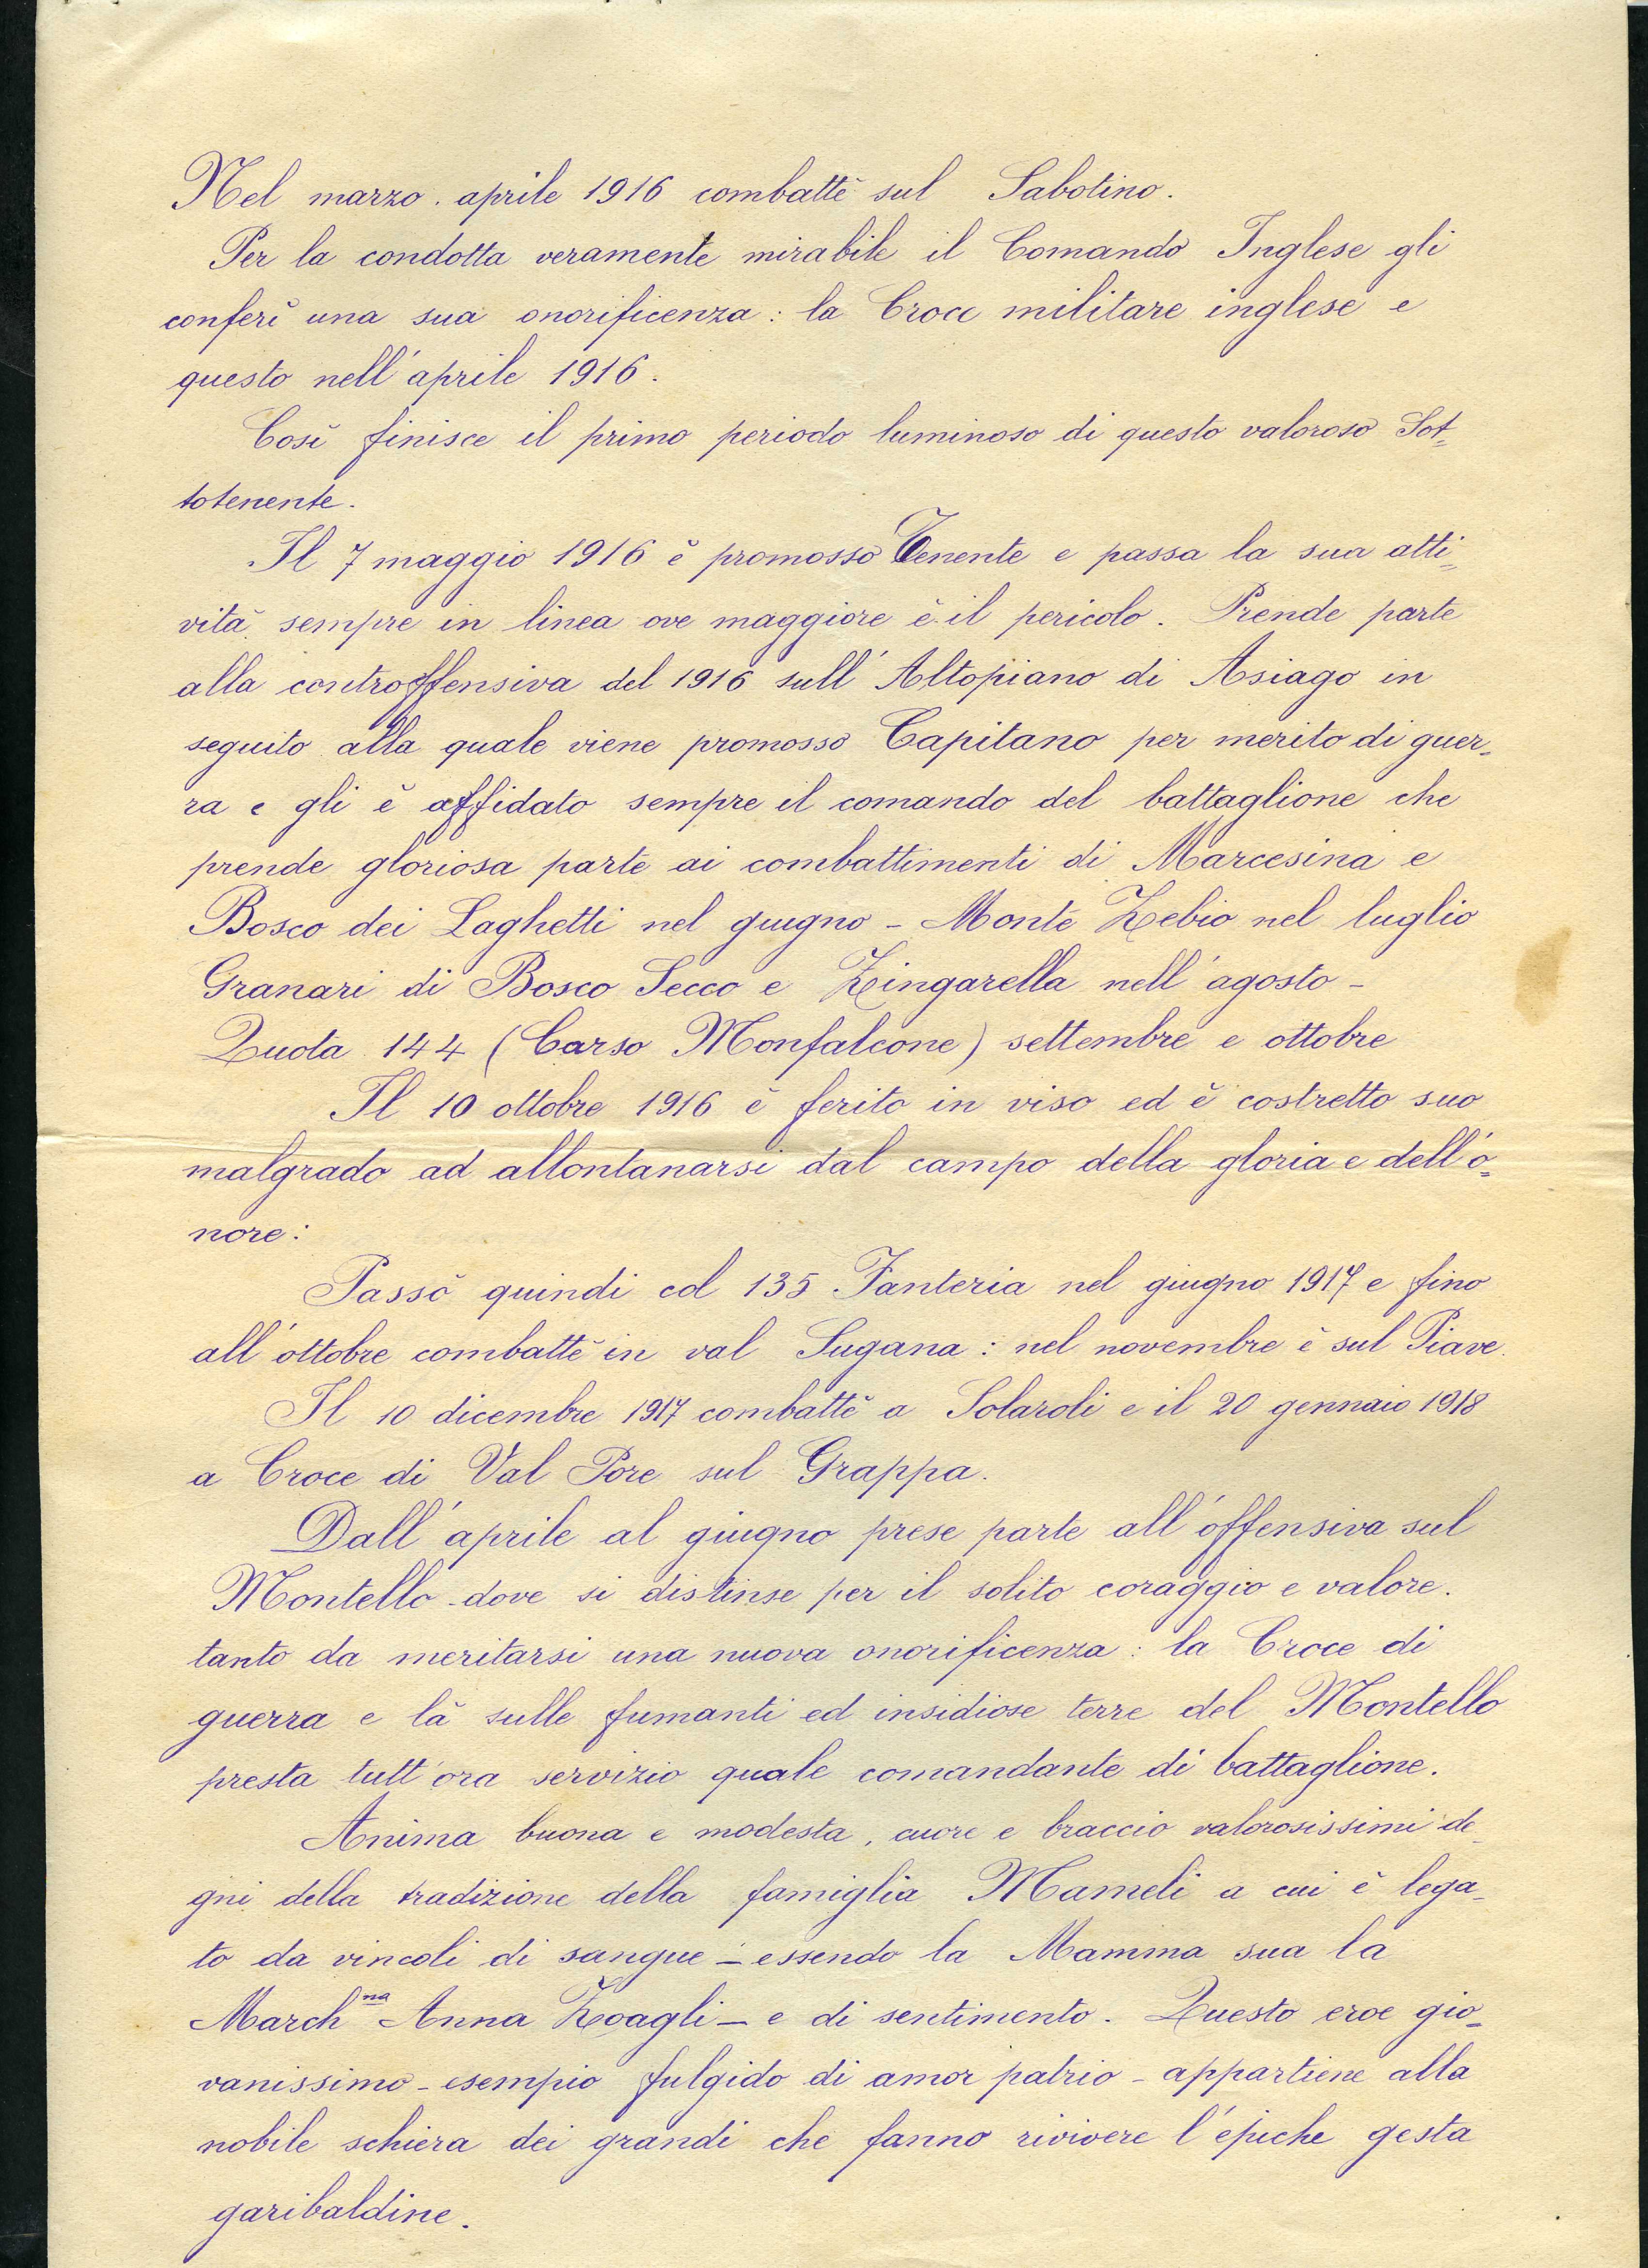 Nel marzo. aprile 1916 combattè sul Sabotino.
Per la condotta veramente mirabile il Comando Inglese gli
conferì una sua onorificenza: la Croce militare inglese e
questo nell'aprile 1916.
Così finisce il primo periodo luminoso di questo valoroso Sot=
totenente.
Il 7 maggio 1916 è promosso Tenente e passa la sua atti=
vità sempre in linea ove maggiore è il pericolo. Prende parte
alla controffensiva del 1916 sull'Altopiano di Asiago in
seguito alla quale viene promosso Capitano per merito di guer=
ra e gli è affidato sempre il comando del battaglione che
prende gloriosa parte ai combattimenti di Marcesina e
Bosco dei Laghetti nel giugno - Monte Zebio nel luglio
Granari di Bosco Secco e Zingarella nell'agosto -
Quota 144 (Carso Monfalcone) settembre e ottobre
Il 10 ottobre 1916 è ferito in viso ed è costretto suo
malgrado ad allontanarsi dal campo della gloria e dell'o=
nore:
Passò quindi col 135 Fanteria nel giugno 1917 e fino
all'ottobre combattè in val Sugana: nel novembre è sul Piave.
Il 10 dicembre 1917 combattè a Solaroli e il 20 gennaio 1918
a Croce di Val Pore sul Grappa.
Dall'aprile al giugno prese parte all'offensiva sul
Montello dove si distinse per il solito coraggio e valore.
tanto da meritarsi una nuova onorificenza: la Croce di
guerra e là sulle fumanti ed insidiose terre del Montello
presta tutt'ora servizio quale comandante di battaglione.
Anima buona e modesta, cuore e braccio valorosissimi de-
gni della tradizione della famiglia Mameli a cui è lega-
to da vincoli di sangue - essendo la Mamma sua la
March.na Anna Zoagli - e di sentimento. Questo eroe gio=
vanissimo - esempio fulgido di amor patrio - appartiene alla
nobile schiera dei grandi che fanno rivivere l'epiche gesta
garibaldine.